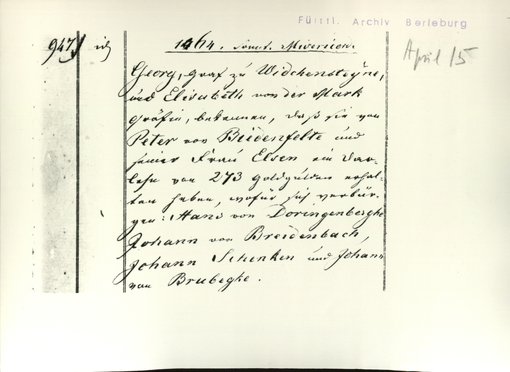 Fürstl. Archiv Berleburg
947)
1464. Domt. Misericor.
April 15
Georg, Graf zu Widchensteyne,
und Elisabeth von der Mark
Gräfin, bekennen, daß sie von
Peter von Biedenfelte und
seiner Frau Elsen ein Dar-
lehn von 273 Goldgulden erhal-
ten haben, wofür sich verbür-
gen: Hans von Doringenberghe
Johann von Breidenbach,
Johann Schenken und Johann
von Brubeghe.